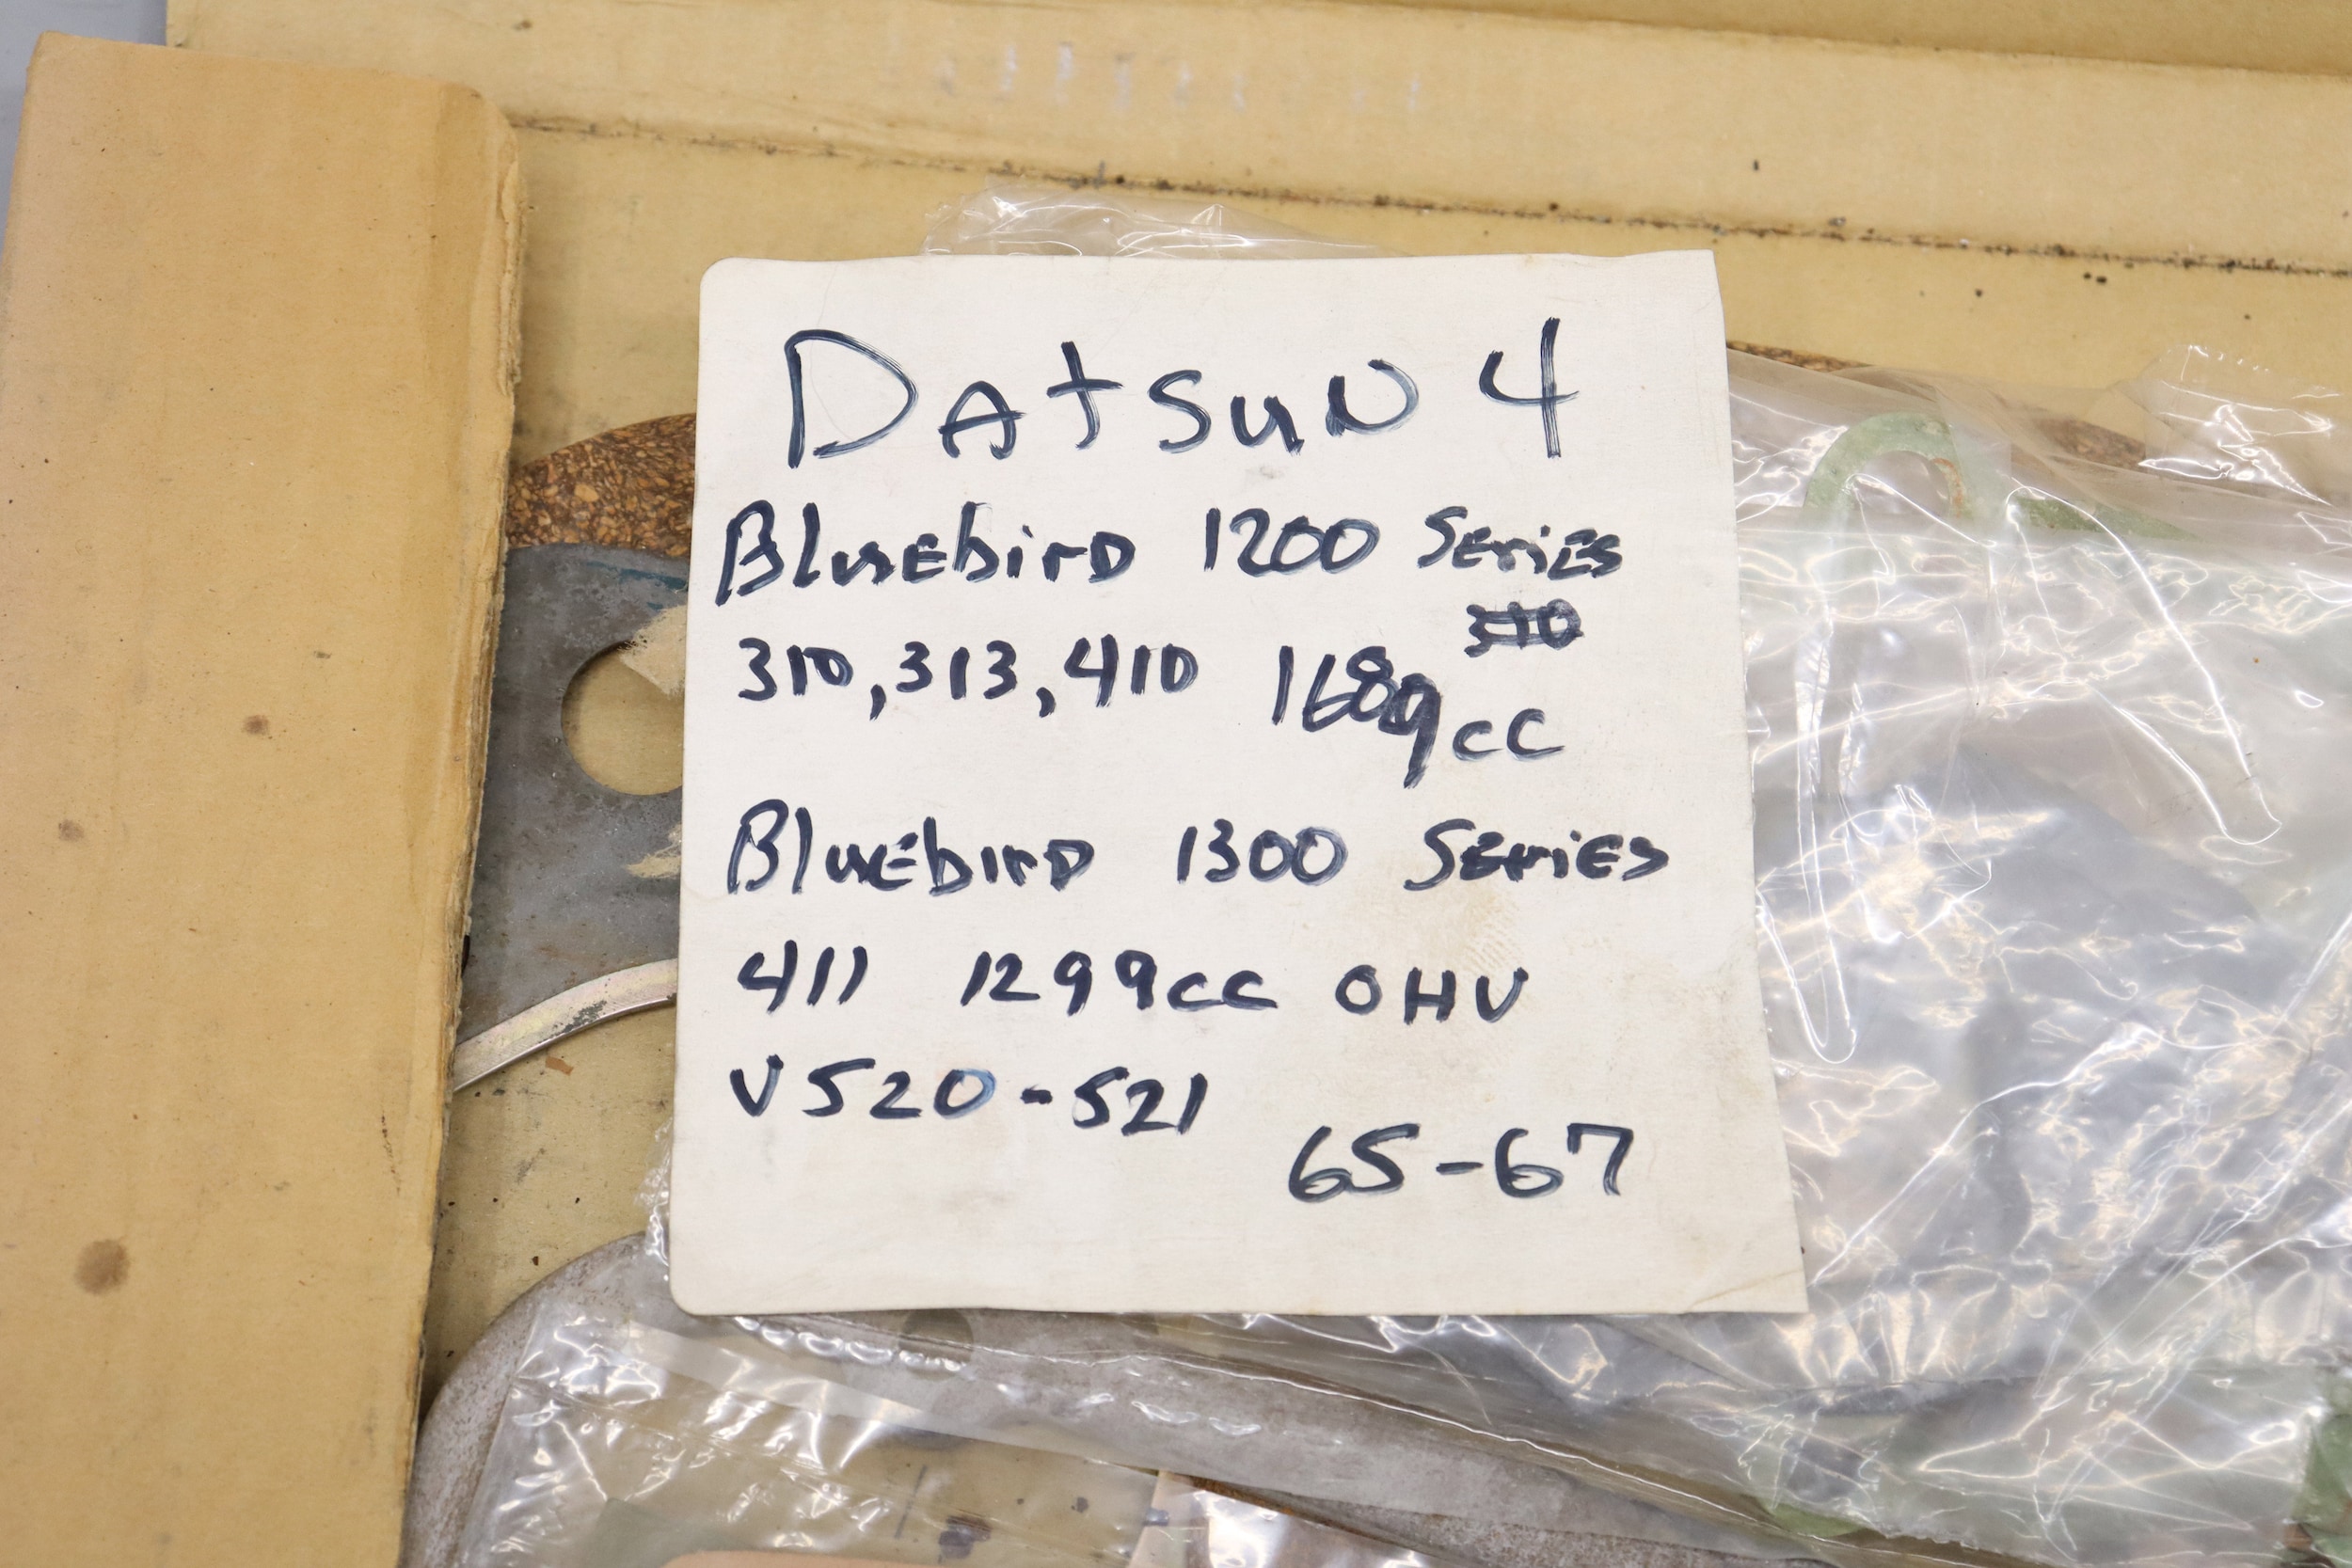 DAtSuN 4
BluEbirD 1200 SEriES
310,313,410 cc
BluEbirD 1300 SEriES
411 1299cc OHV
V520-521
65-67